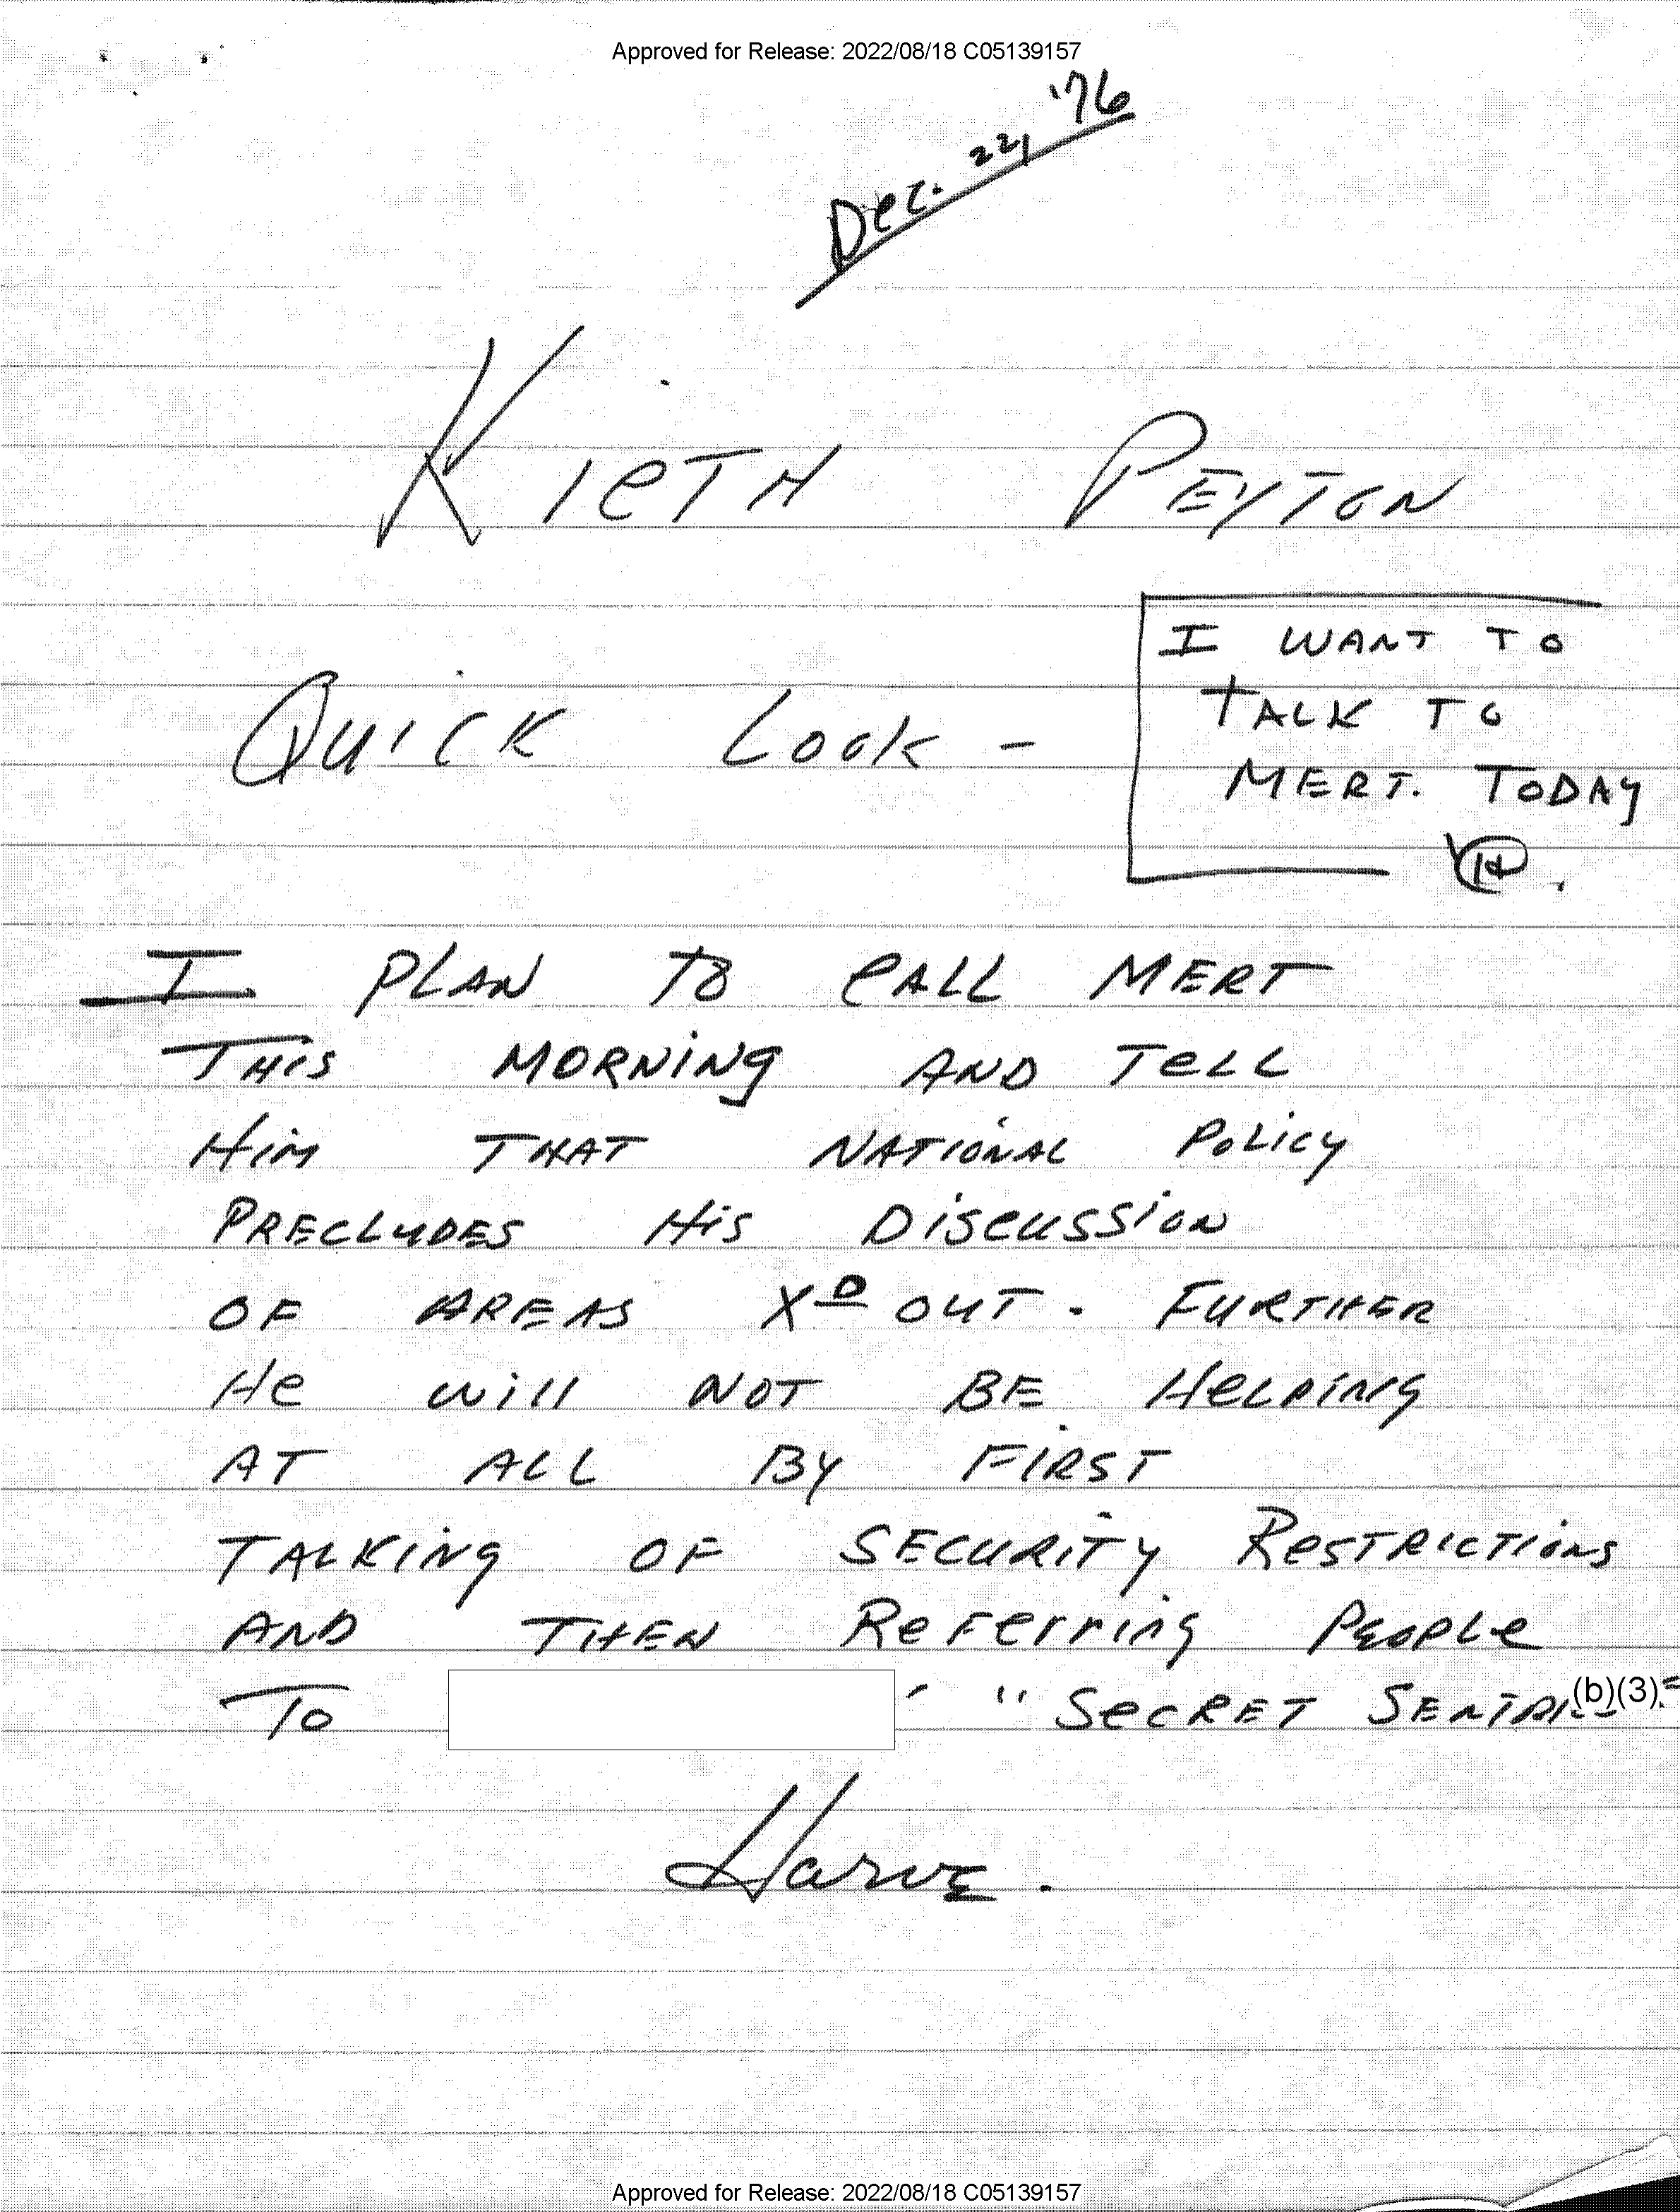 Approved for Release: 2022/08/18 C05139157
Dec. 22, '76
KIETH PEYTON
QUICK LOOK -
I WANT TO
TALK TO
MERT. TODAY
H.
I PLAN TO CALL MERT
THIS MORNING AND TELL
HIM THAT NATIONAL POLICY
PRECLUDES HIS DISCUSSION
OF AREAS XD OUT. FURTHER
He will NOT BE HELPING
AT ALL BY FIRST
TALKING OF SECURITY RESTRICTIONS
AND THEN REFERRING PEOPLE
TO ' " SECRET (b)(3)
Harve.
Approved for Release: 2022/08/18 C05139157